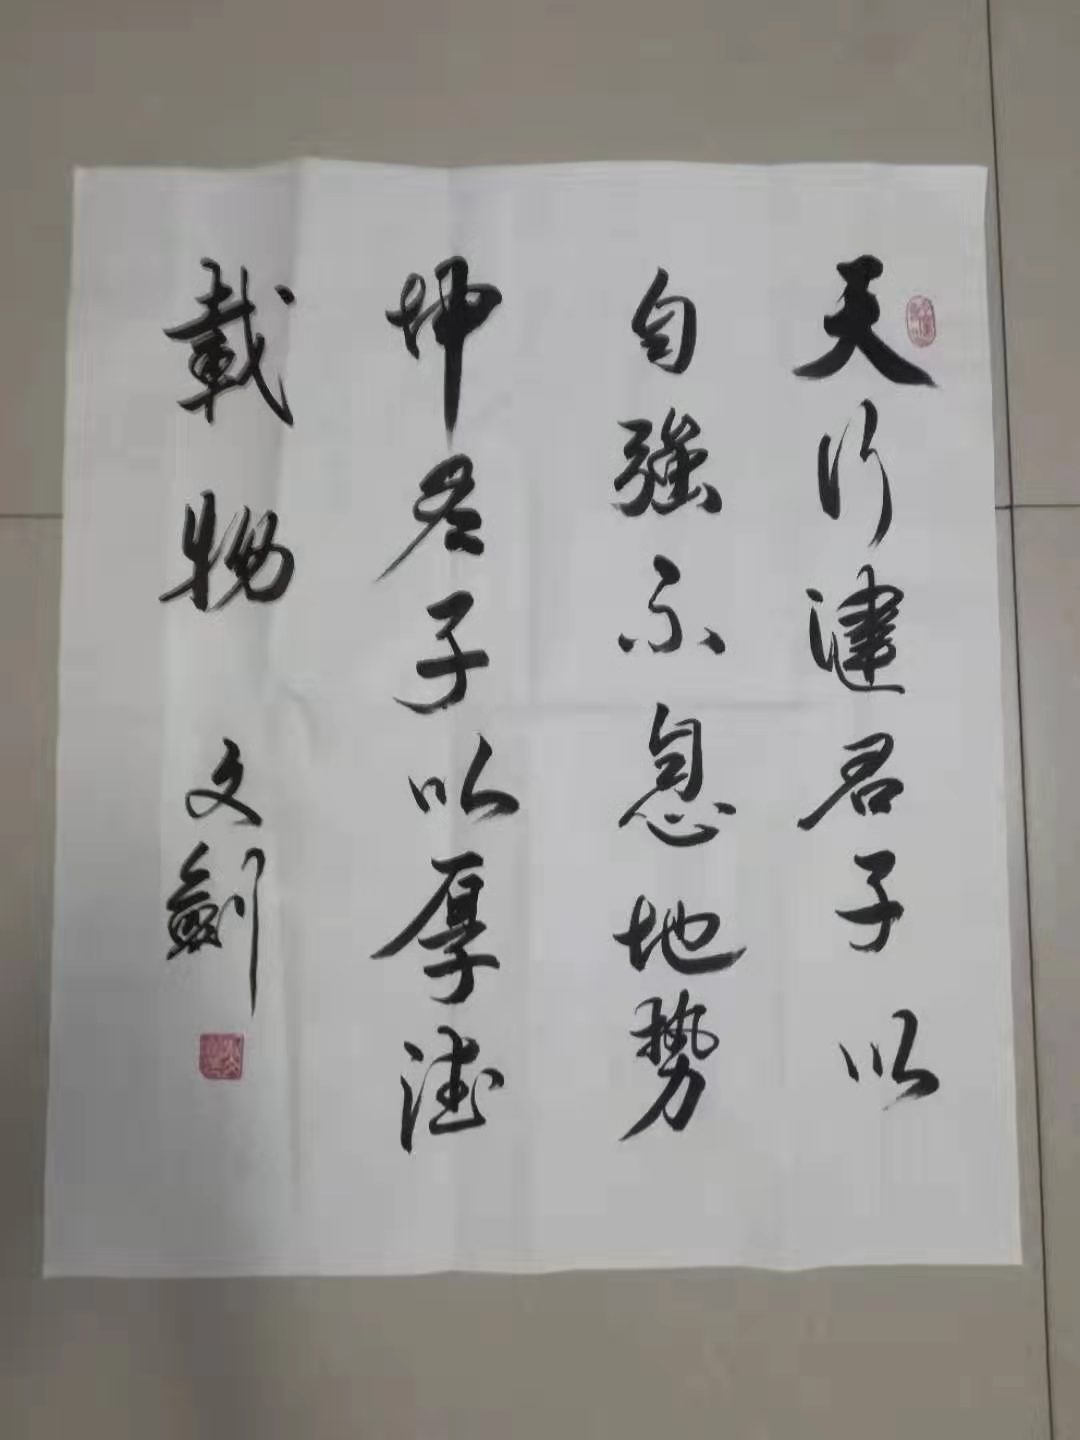 天行健君子以
自强不息地势
坤君子以厚德
載物 文劍